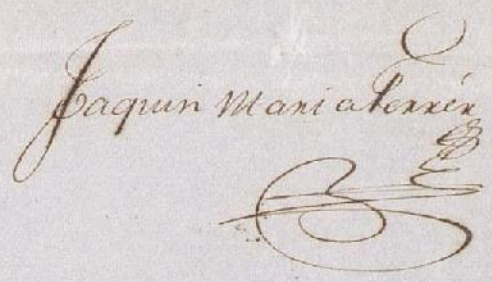 Joaquin Maria Ferrér